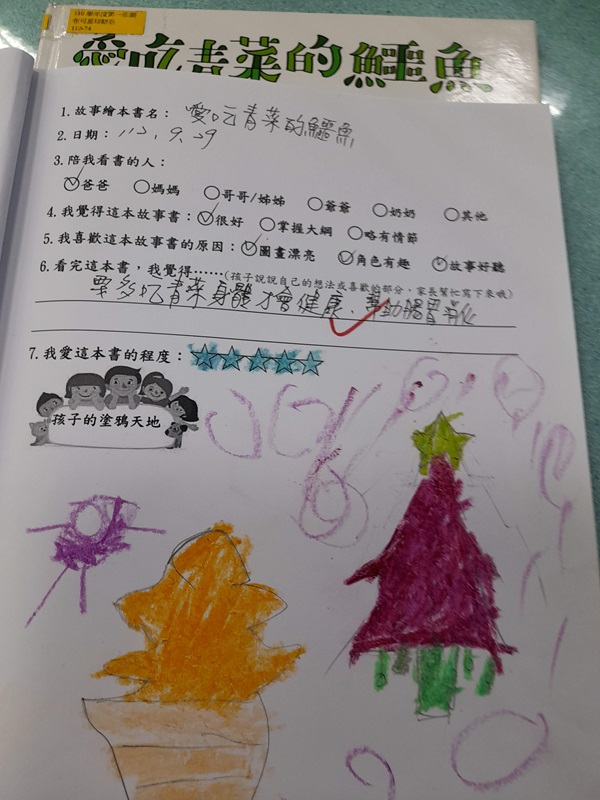 愛吃青菜的鱷魚
1.故事繪本書名： 愛吃青菜的鱷魚
2.日期：112.9.29
3.陪我看書的人：
爸爸 媽媽 哥哥/姊姊 爺爺 奶奶 其他
4.我覺得這本故事書： 很好 掌握大綱 略有情節
5.我喜歡這本故事書的原因： 圖畫漂亮 角色有趣 故事好聽
6.看完這本書，我覺得……(孩子說說自己的想法或喜歡的部分，家長幫忙寫下來哦)
要多吃青菜身體才會健康、幫助腸胃消化
7.我愛這本書的程度：
孩子的塗鴉天地